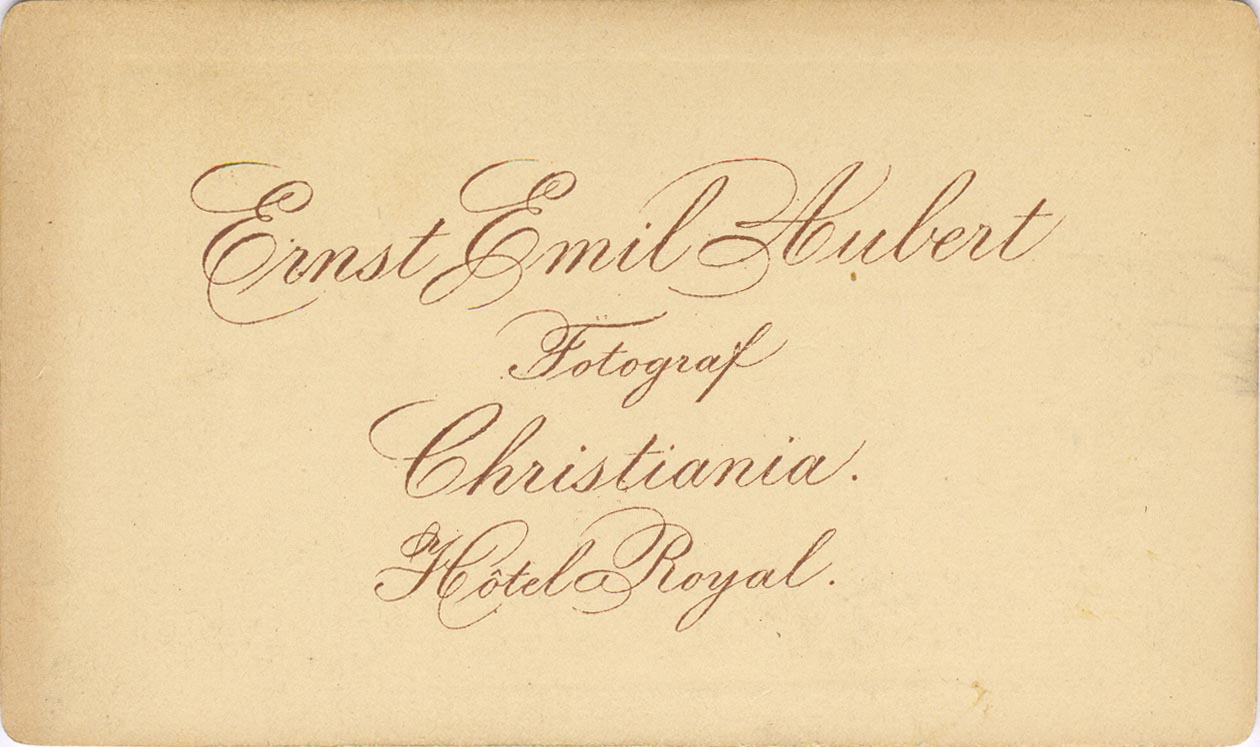 Ernst Emil Aubert
Fotograf
Christiania.
Hôtel Royal.